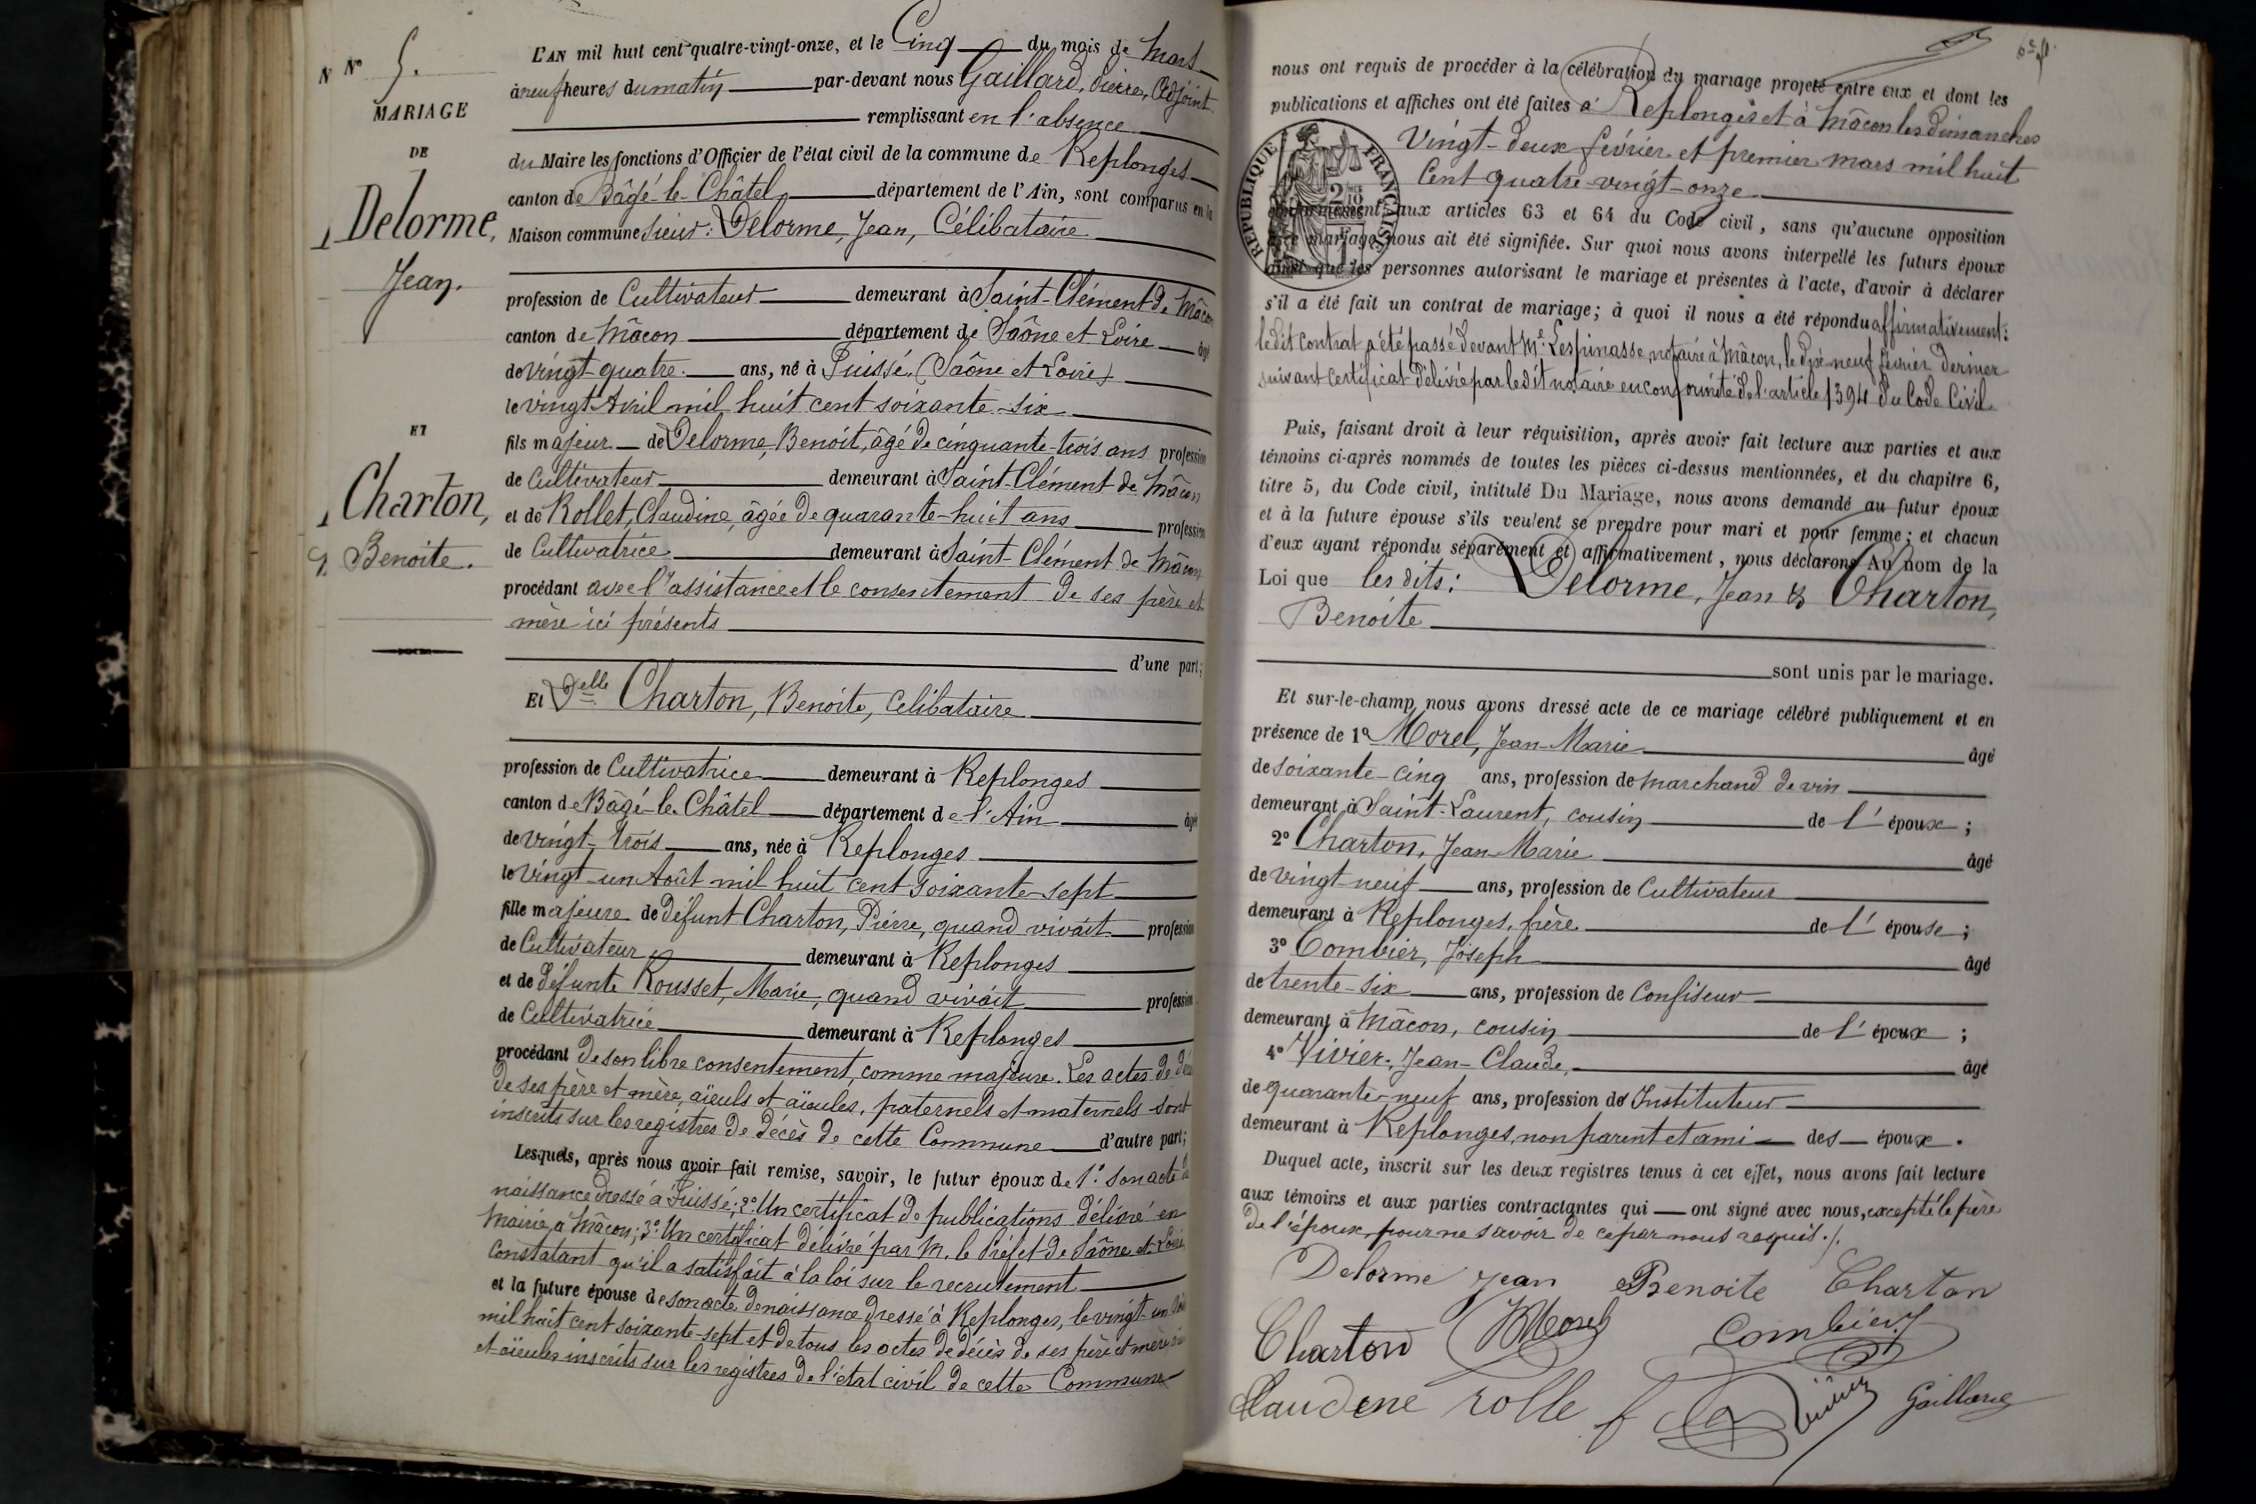 N Nº 5.
MARIAGE
DE
Delorme,
Jean.
ET
Charton,
Benoite.
L'AN mil huit cent quatre-vingt-onze, et le Cinq du mois de Mars
à neuf heures du matin par-devant nous Gaillard, Pierre, Adjoint
remplissant en l'absence
du Maire les fonctions d'Officier de l'état civil de la commune de Replonges
canton de Bâgé-le-Châtel département de l'Ain, sont comparus en la
Maison commune sieur : Delorme, Jean, Célibataire
profession de Cultivateur demeurant à Saint-Clément de Mâcon
canton de Mâcon département de Saône et Loire âgé
de vingt quatre ans, né à Fuissé, (Saône et Loire)
le vingt Avril mil huit cent soixante-six
fils majeur de Delorme, Benoit, âgé de cinquante-trois ans profession
de Cultivateur demeurant à Saint-Clément de Mâcon
et de Rollet, Claudine, âgée de quarante-huit ans profession
de Cultivatrice demeurant à Saint-Clément de Mâcon
procédant avec l'assistance et le consentement de ses père et
mère ici présents
d'une part;
Et Delle Charton, Benoite, Célibataire
profession de Cultivatrice demeurant à Replonges
canton de Bâgé-le-Châtel département de l'Ain âgée
de vingt-trois ans, née à Replonges
le vingt-un Août mil huit cent soixante-sept
fille majeure de défunt Charton, Pierre, quand vivait profession
de Cultivateur demeurant à Replonges
et de défunte Rousset, Marie, quand vivait profession
de Cultivatrice demeurant à Replonges
procédant de son libre consentement, comme majeure. Les actes de
de ses père et mère, aïeuls et aïeules, paternels et maternels sont
inscrits sur les registres de décès de cette Commune d'autre part;
Lesquels, après nous avoir fait remise, savoir, le futur époux de 1º son acte de
naissance dressé à Fuissé; 2º Un certificat de publications délivré en
Mairie, à Mâcon; 3º Un certificat délivré par M. le Préfet de Saône et Loire
constatant qu'il a satisfait à la loi sur le recrutement
et la future épouse de son acte de naissance dressé à Replonges, le vingt-un Août
mil huit cent soixante-sept et de tous les actes de décès de ses père et mère
et aïeules inscrits sur les registres de l'état civil de cette Commune
nous ont requis de procéder à la célébration du mariage projeté entre eux et dont les
publications et affiches ont été faites à Replonges et à Mâcon les dimanches
Vingt-deux Février et premier mars mil huit
Cent quatre-vingt-onze
REPUBLIQUE FRANÇAISE
conformément aux articles 63 et 64 du Code civil, sans qu'aucune opposition
à ce mariage nous ait été signifiée. Sur quoi nous avons interpellé les futurs époux
ainsi que les personnes autorisant le mariage et présentes à l'acte, d'avoir à déclarer
s'il a été fait un contrat de mariage; à quoi il nous a été répondu affirmativement:
le dit contrat a été passé devant Me. Lespinasse, notaire à Mâcon, le dix-neuf Février dernier
suivant certificat délivré par le dit notaire en conformité de l'article 1394 du Code Civil.
Puis, faisant droit à leur réquisition, après avoir fait lecture aux parties et aux
témoins ci-après nommés de toutes les pièces ci-dessus mentionnées, et du chapitre 6,
titre 5, du Code civil, intitulé Du Mariage, nous avons demandé au futur époux
et à la future épouse s'ils veulent se prendre pour mari et pour femme; et chacun
d'eux ayant répondu séparément et affirmativement, nous déclarons Au nom de la
Loi que les dits: Delorme, Jean & Charton,
Benoite
sont unis par le mariage.
Et sur-le-champ nous avons dressé acte de ce mariage célébré publiquement et en
présence de 1º Morel, Jean-Marie âgé
de soixante-cinq ans, profession de marchand de vin
demeurant à Saint-Laurent, cousin de l'époux;
2º Charton, Jean-Marie âgé
de vingt-neuf ans, profession de Cultivateur
demeurant à Replonges, frère de l'épouse;
3º Combier, Joseph âgé
de trente-six ans, profession de Confiseur
demeurant à Mâcon, cousin de l'époux;
4º Vivier, Jean-Claude, âgé
de quarante-neuf ans, profession de Instituteur
demeurant à Replonges, non parent et ami des époux.
Duquel acte, inscrit sur les deux registres tenus à cet effet, nous avons fait lecture
aux témoins et aux parties contractantes qui ont signé avec nous, excepté le père
de l'époux, pour ne savoir de ce par nous requis./.
Delorme Jean Benoite Charton
Charton JMMorel Combier J
Claudene rolle Vivier Gaillard